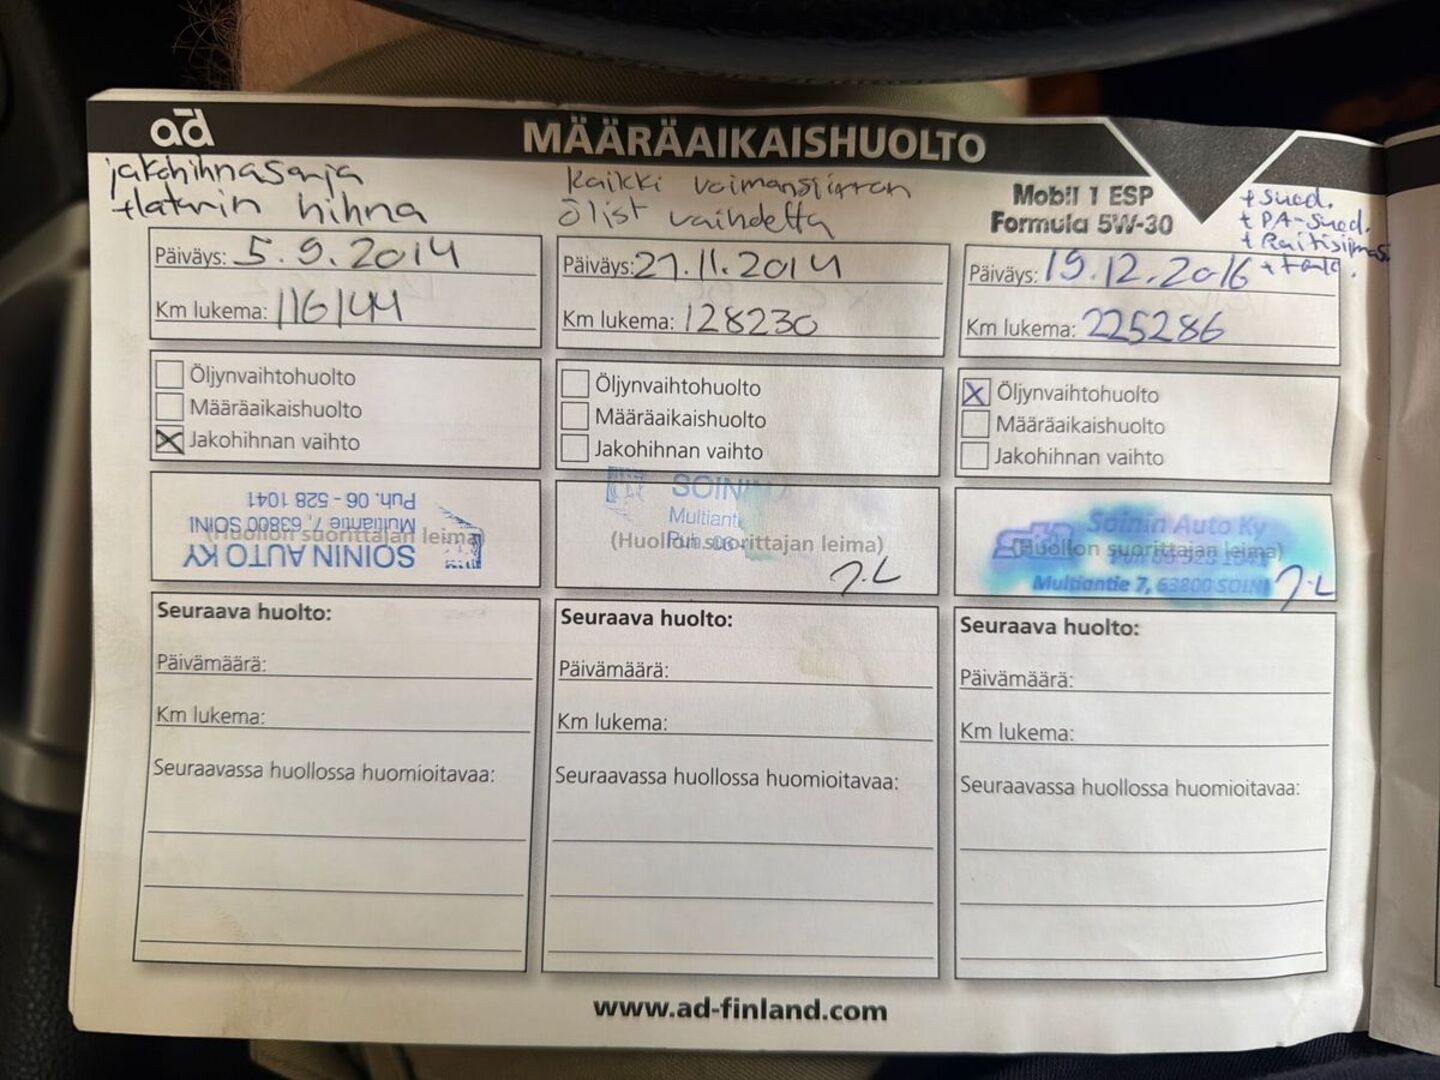 ad
MÄÄRÄAIKAISHUOLTO
jakohihnasarja
+laturin hihna
Päiväys: 5.9.2014
Km lukema: 116144
Öljynvaihtohuolto
Määräaikaishuolto
Jakohihnan vaihto
SOININ AUTO KY
Multiantie 7, 63800 SOINI
Puh. 06 - 528 1041
(Huollon suorittajan leima)
Seuraava huolto:
Päivämäärä:
Km lukema:
Seuraavassa huollossa huomioitavaa:
kaikki voimansiirron
ölist vaihdettu
Päiväys: 21.11.2014
Km lukema: 128230
Öljynvaihtohuolto
Määräaikaishuolto
Jakohihnan vaihto
SOININ
Multianti
Puh. 06-
(Huollon suorittajan leima)
J.L
Seuraava huolto:
Päivämäärä:
Km lukema:
Seuraavassa huollossa huomioitavaa:
Mobil 1 ESP
Formula 5W-30
+ Suod.
+ PA-Suod.
+ Raitisilmas
Päiväys: 19.12.2016
Km lukema: 225286
Öljynvaihtohuolto
Määräaikaishuolto
Jakohihnan vaihto
Soinin Auto Ky
(Huollon suorittajan leima)
Puh 06 528 1041
Multiantie 7, 63800 SOINI
J.L
Seuraava huolto:
Päivämäärä:
Km lukema:
Seuraavassa huollossa huomioitavaa:
www.ad-finland.com